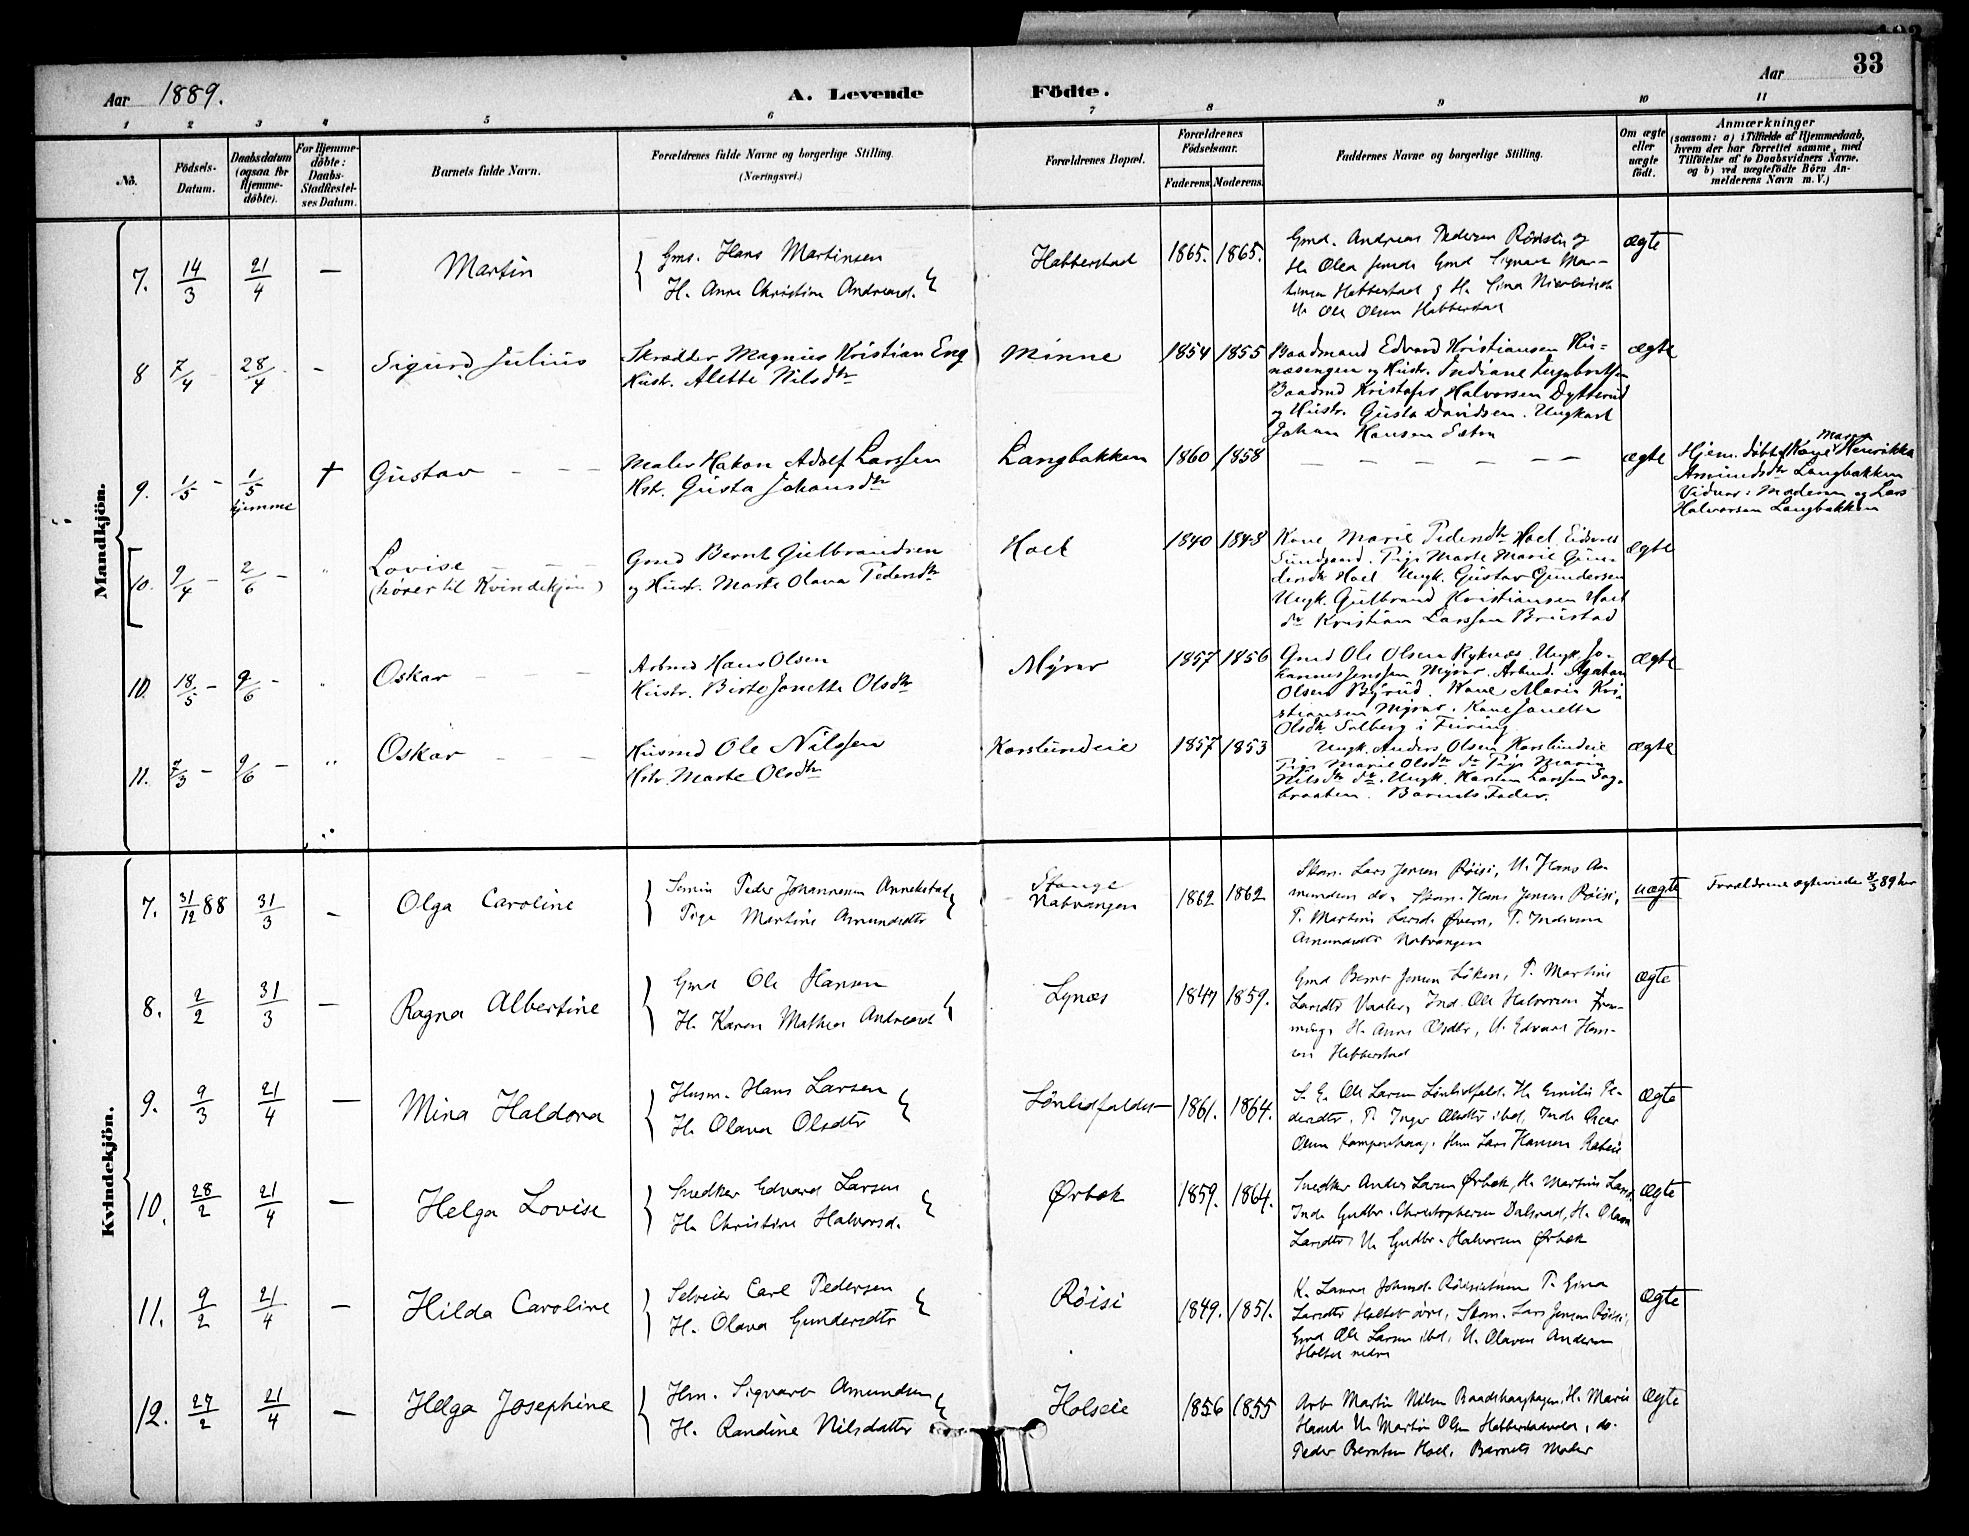 33
Aar 1889.
A. Levende Födte.
Aar
1 2 3 4 5 6 7 8 9 10 11
No.
Födsels-Datum.
Daabsdatum (ogsaa for Hjemme-döbte).
For Hjemme-döbte: Daabs-Stadfæstel-ses Datum.
Barnets fulde Navn.
Forældrenes fulde Navne og borgerlige Stilling.
(Næringsvei.)
Forældrenes Bopæl.
Forældrenes Födselsaar.
Faderens. Moderens.
Faddernes Navne og borgerlige Stilling.
Om ægte eller uægte födt.
Anmærkninger
(saasom: a) i Tilfælde af Hjemmedaab, hvem der har forrettet samme, med Tilföielse af to Daabsvidners Navne. og b) ved uægtefödte Börn Anmelderens Navn m.V.)
Mandkjön.
7. 14/3 21/4 — Martin
Gms. Hans Martinsen
H. Anne Christine Andreasd.
Habberstad 1865. 1865.
Gmd. Andreas Pedersen og
Habberstad
H. Ole Olsen Habberstad
ægte
8 7/4 28/4 - Sigurd Julius
Skrædder Magnus Kristian Eng
Hustr. Alette Nilsdtr
Minne 1854 1855
Baadmand Edvard Kristiansen
og Hustr.
Baadmd Kristofer Halvorsen Dytterud
og Hustr. Gusta Davidsen. Ungkarl
Johan Hansen
ægte
9. 1/5 - 1/5 hjemme † Gustav
Maler Hakon Adolf Larssen
Hstr. Gusta Johansdtr
Langbakken 1860 1858
— — — — — —
ægte
Hjem.döbt af Kone Maren Henrikka
Amundsdtr Langbakken
Vidner: Moderen og Lars
Halvorsen Langbakken
10. 9/4 - 2/6 - Lovise
(hører til Kvindekjön)
Gmd Bernt Gulbrandsen
og Hustr. Marte Olava Pedersdtr
Hoel 1840 1848
Kone Marie Pedersdtr Hoel, Eidsvold
Sundgaard. Pige Marte Marie
Hoel Ungk. Gustav Gundersen
Ungk. Gulbrand Kristiansen Hoel
do Kristian Larssen Brustad
ægte
10. 18/5 - 9/6 - Oskar
Arbmd Hans Olsen
Hustr. Birte Jonette Olsdtr
Myrer 1857 1856
Gmd Ole Olsen Ryknes, Ungk. Jo-
hannes Jenssen Myrer. Arbmd. Agaton
Olsen Byrud. Kone Maria Kri-
stiansen Myrer. Kone Jonette
Olsdtr Solberg i Feiring
ægte
11. 7/3 - 9/6 - Oskar
Husmd Ole Nilssen
Hstr. Marte Olsdtr
Korslundeie 1857 1853
Ungk. Anders Olsen Korslundeie
Pige Marie Olsdtr do Pige Maria
Nilsdtr do. Ungk. Karsten Larssen Sag-
braaten. Barnets Fader.
ægte
Kvindekjön.
7. 31/12 88 31/3 — Olga Caroline
Peder Johannesen Annekstad
Pige Martine Amundsdtr
Stange
Natvangen 1862 1862
Skom. Lars Jensen Röisi, U. Hans A-
mundsen do. Skom. Hans Jensen Röisi,
P. Martine Larsd. Övern, P.
Amundsdtr Natvangen
uægte
Forældrene ægteviede
8. 2/2 31/3 — Ragna Albertine
Gmd Ole Hansen
H. Karen Mathea Andreasd
Lynæs 1847 1859.
Gmd Bernt Jensen Löken, P. Martine
Larsdtr Vaaler, Ind. Ole Halvorsen
H. Anne Olsdtr, U. Edvard Han-
sen Habberstad
ægte
9. 9/3 21/4 — Mina Haldora
Husm. Hans Larsen
H. Olava Olsdtr
1861. 1864.
Ole Larsen H. Emilie Pe-
dersdtr. P. Inger Olsdtr ibd, Inds. Oscar
Olsen Hm Lars Hansen
ægte
10. 28/2 21/4 — Helga Lovise
Snedker Edvard Larsen
H. Christine Halvorsd.
Ørbæk 1859. 1864.
Snedker Anders Larsen Ørbæk, H. Martine Larsd.
Inds. Gudbr. Christophersen Dalsrud, H. Olava
Larsdtr U. Gudbr. Halvorsen Ørbæk
ægte
11. 9/2 21/4 — Hilda Caroline
Selveier Carl Pedersen
H. Olava Gundersdtr
Röisi 1849. 1851.
K. Laura P. Gina
Larsdtr Holtet övre, Skom. Lars Jensen Röisi,
Gmd Ole Larsen ibd, U. Olaves Andersen
Holtet nedre
ægte
12. 27/2 21/4 — Helga Josephine
Hm. Sigvart Amundsen
H. Randine Nilsdatter
Holseie 1856 1855
Arb Martin Nilsen H. Marie
Hansd. U. Martin Olsen do.
Peder Berntsen Hoel, Barnets Moder
ægte